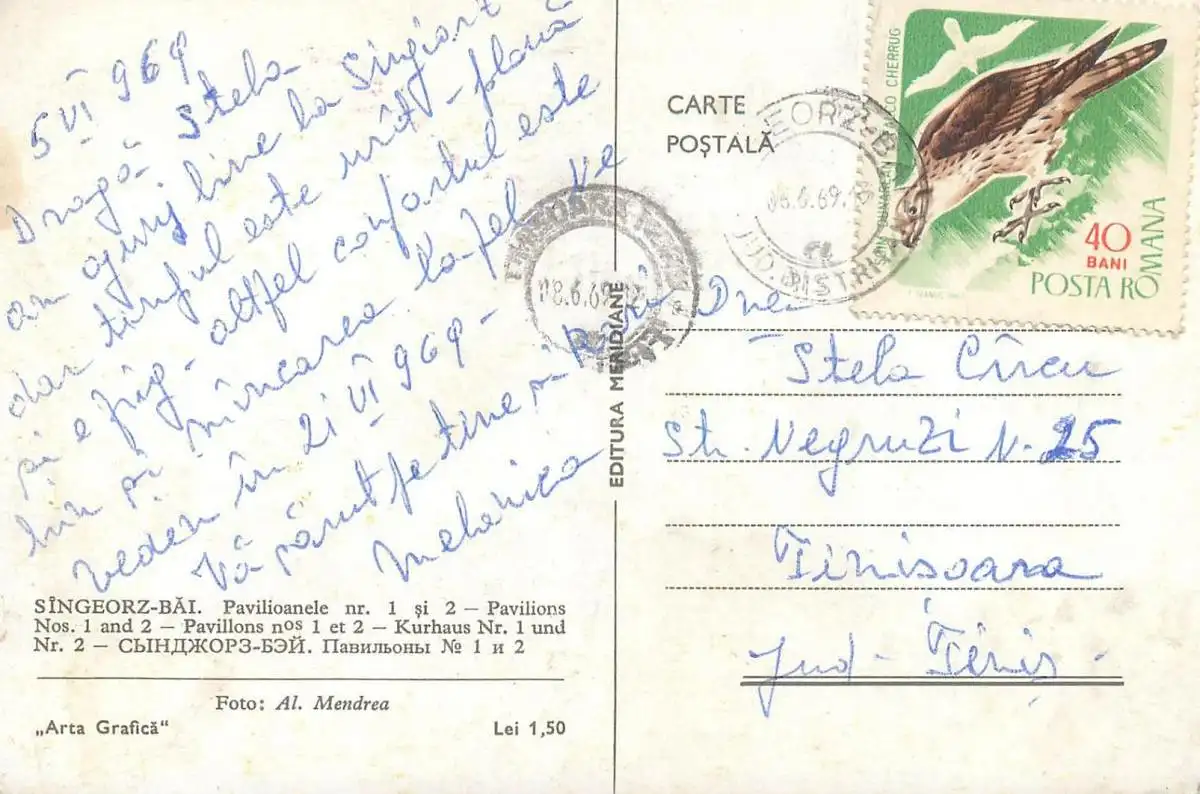 5 VI 969
Dragă Stela
am ajuns bine la Sîngiorz
dar timpul este urît - plouă
și e frig - altfel confortul este
bun și mîncarea la fel. Ne
vedem în 21 VI 969 -
Vă sărut pe tine și
Melanica
SÎNGEORZ-BĂI. Pavilioanele nr. 1 și 2 — Pavilions
Nos. 1 and 2 — Pavillons nos 1 et 2 — Kurhaus Nr. 1 und
Nr. 2 — СЫНДЖОРЗ-БЭЙ. Павильоны № 1 и 2
Foto: Al. Mendrea
„Arta Grafică“
Lei 1,50
EDITURA MERIDIANE
CARTE
POȘTALĂ
EORZ-B
6.69
JUD. BISTRIȚA
TIMIȘOARA
08.6.69
CO CHERRUG
40
BANI
POSTA ROMANA
Dnei
Stela Cîrcu
Str. Negruzi N. 25
Timisoara
Jud - Timiș -